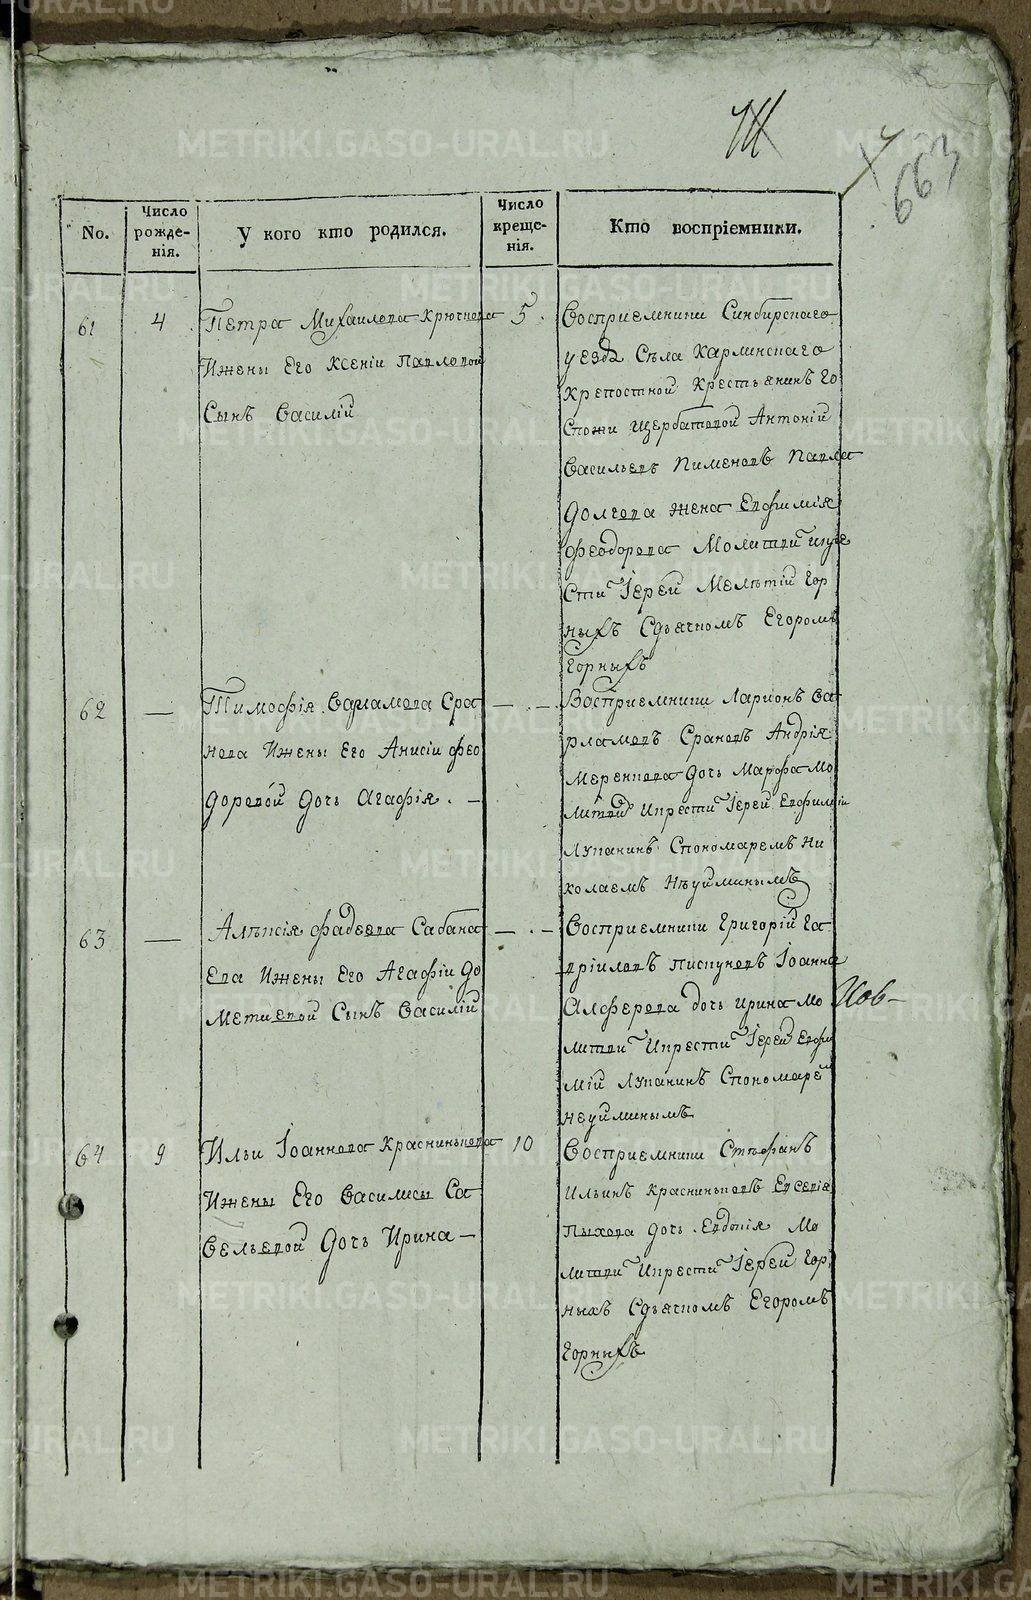 663
No.
Число рожде-
нія.
У кого кто родился.
Число
креще-
нія.
Кто воспріемники.
61
4
Петра Михаилова Крючкова
Ижены Его Ксеніи Павловой
Сынъ Василій
5
Восприемники Синбирскаго
уезда Села Карлинскаго
Крепостной Крестьянинъ Го
Спожи Щербатовой Антоній
Васильевъ Пименовъ Павла
Долгова жена Евфимія
Феодорова Молитви Икре
Сти Іерей Мелѣтій Гор
ныхъ Сдьячкомъ Егоромъ
Горныхъ
62
—
Тимофія Варламова Сра
нова Ижены Его Анисіи Фео
доровой дочь Агафія. —
— . —
Восприемники Ларионъ Ва
рламовъ Срановъ Андрія
Меренкова дочь Марфа Мо
литви Икрести Іерей Евфимій
Лупанинъ Спономаремъ Ни
колаемъ Неуйминымъ
63
—
Алѣксія Фадеева Сабана
Ева Ижены Его Агафіи До
Метиевой Сынъ Василій
— . —
Восприемники Григорій Га
вріиловъ Пискуновъ Іоанна
Алферова дочь Ирина Мо
литви Икрести Іерей Евфи
мій Лупанинъ Спономаре
Неуйминымъ
64
9
Ильи Іоаннова Краснинькова
Ижены Его Василисы Са
Вельевой Дочь Ирина —
10
Восприемники Стефанъ
Ильинъ Красниньковъ Евсевія
Пыхова дочь Евдокія Мо
литви Икрести Іерей Гор
ныхъ Сдьячкомъ Егоромъ
Горныхъ
METRIKI.GASO-URAL.RU